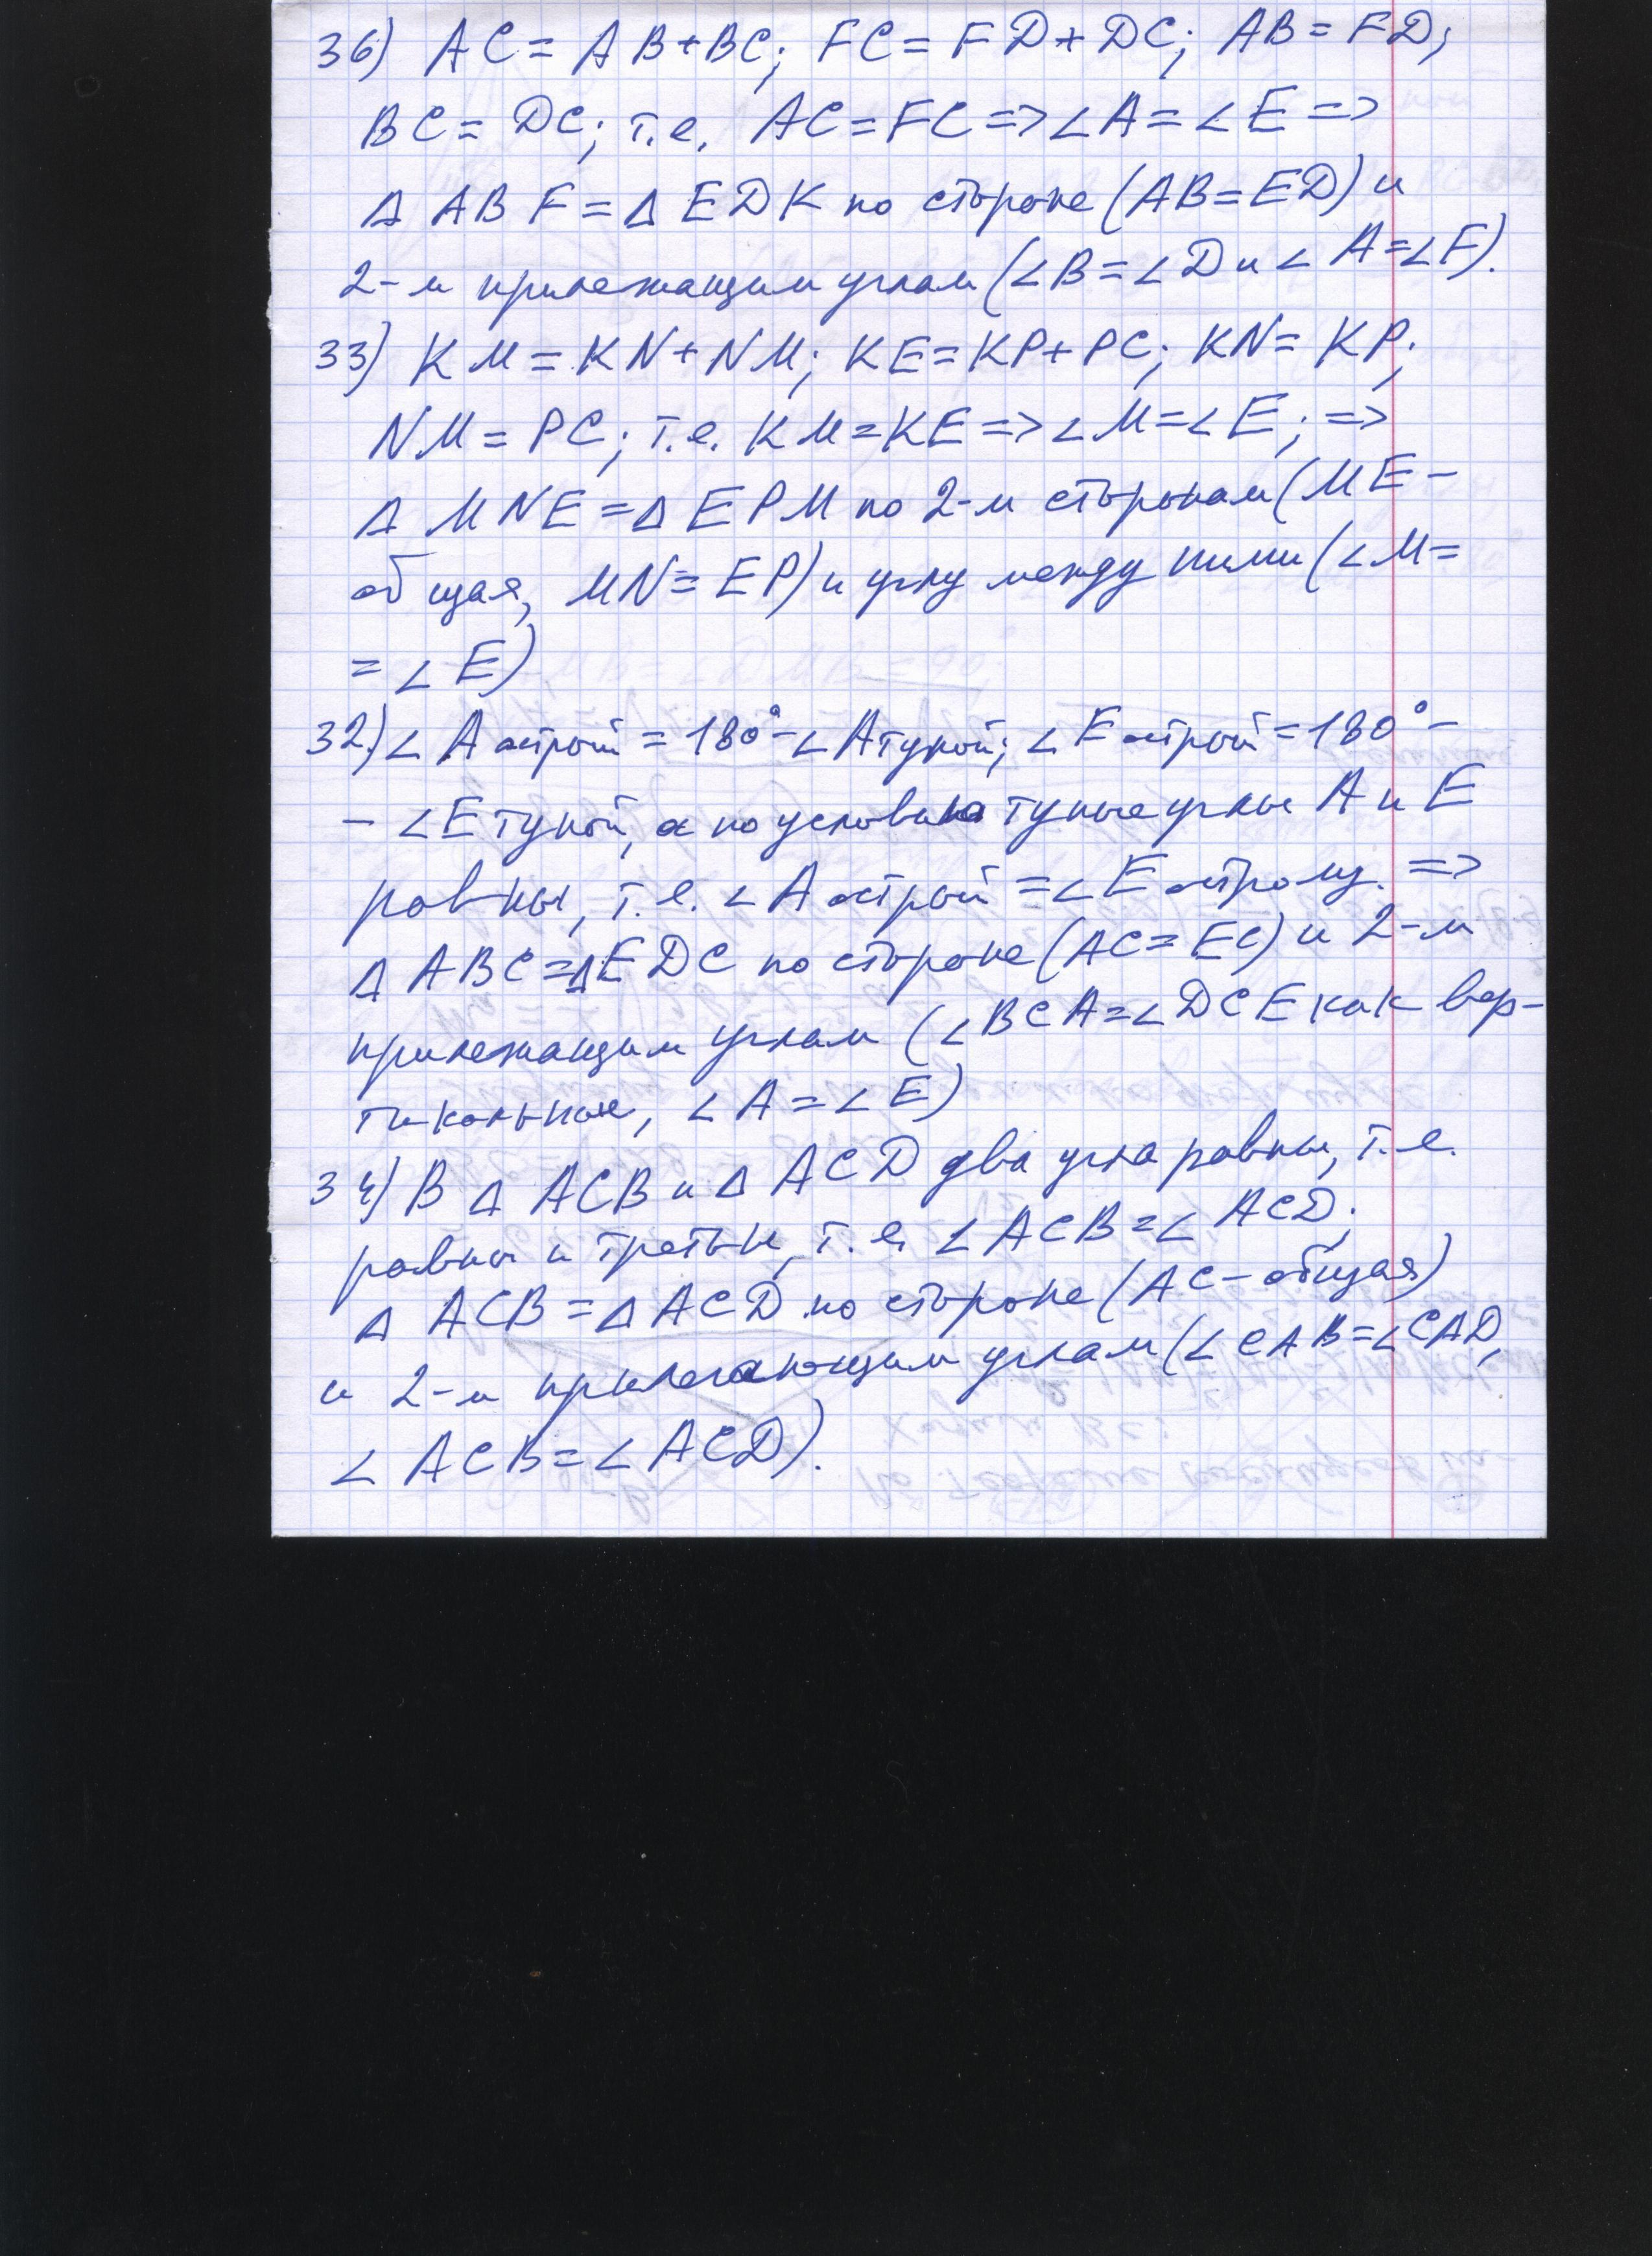 36) AC = AB + BC; FC = FD + DC; AB = FD;
BC = DC; т.е. AC = FC => ∠A = ∠E =>
Δ ABF = Δ EDK по стороне (AB = ED) и
2-м прилежащим углам (∠B = ∠D и ∠A = ∠F).
33) KM = KN + NM; KE = KP + PC; KN = KP;
NM = PC; т.е. KM = KE => ∠M = ∠E; =>
Δ MNE = Δ EPM по 2-м сторонам (ME –
общая, MN = EP) и углу между ними (∠M =
= ∠E)
32) ∠A острый = 180° – ∠A тупой; ∠E острый = 180° –
– ∠E тупой, а по условию тупые углы A и E
равны, т.е. ∠A острый = ∠E острому. =>
Δ ABC = Δ EDC по стороне (AC = EC) и 2-м
прилежащим углам (∠BCA = ∠DCE как вер-
тикальные, ∠A = ∠E)
34) В Δ ACB и Δ ACD два угла равны, т.е.
равны и третьи, т.е. ∠ACB = ∠ACD;
Δ ACB = Δ ACD по стороне (AC – общая)
и 2-м прилегающим углам (∠CAB = ∠CAD,
∠ACB = ∠ACD).